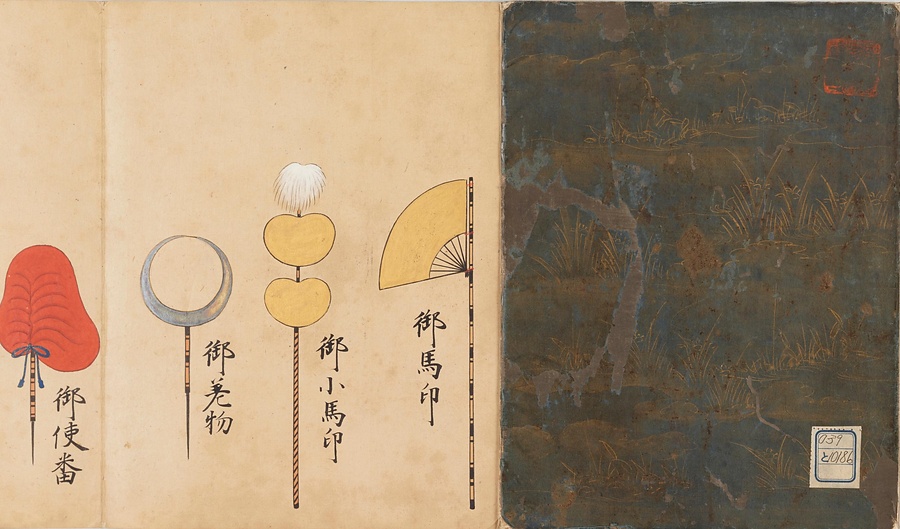 御馬印
御小馬印
御差物
御使番
059
と10186